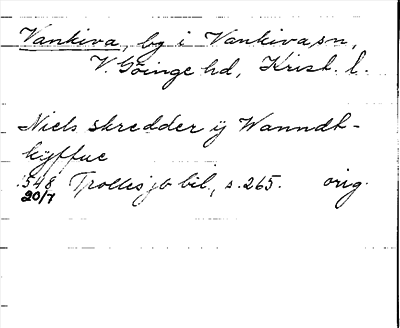 Vankiva, by i Vankiva sn,
V. Göinge hd, Krist. l.
Niels skredder ÿ Wanndt-
kÿffue
1548 Trollesjö bil., s. 265. orig.
20/7